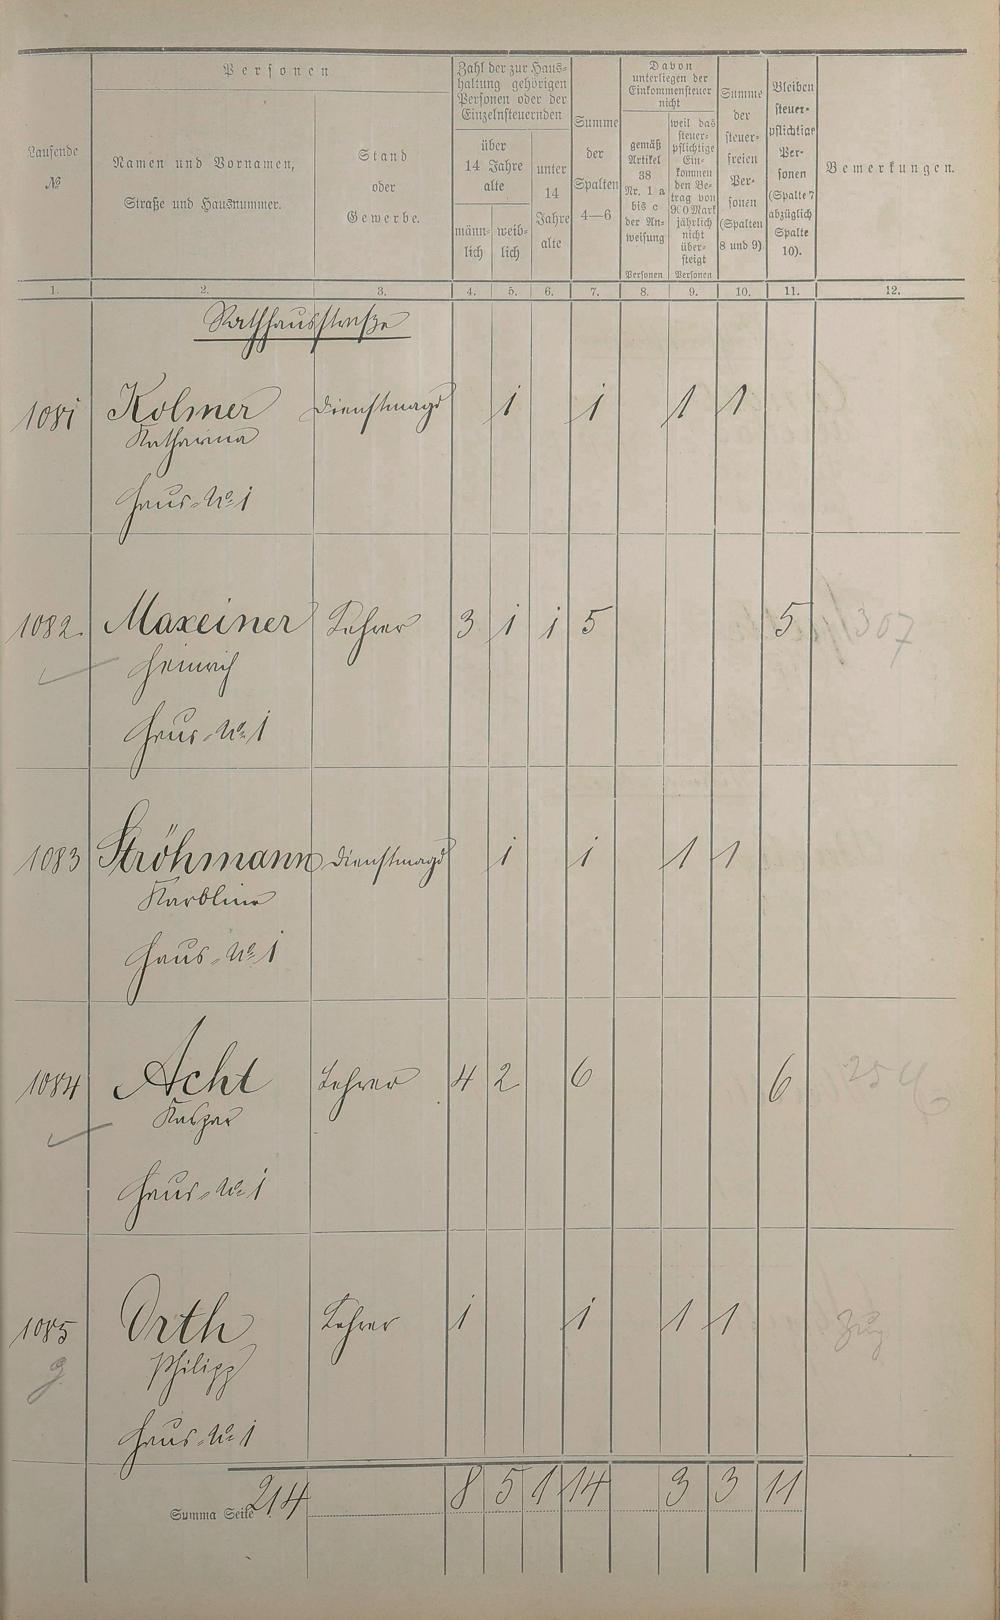 Personen
Laufende
№
Namen und Vornamen,
Straße und Hausnummer.
Stand
oder
Gewerbe.
Zahl der zur Haus-
haltung gehörigen
Personen oder der
Einzelnsteuernden
über
14 Jahre
alte
männ-
lich
weib-
lich
unter
14
Jahre
alte
Summe
der
Spalten
4—6
Davon
unterliegen der
Einkommensteuer
nicht
gemäß
Artikel
38
Nr. 1 a
bis c
der An-
weisung
Personen
weil das
steuer-
pflichtige
Ein-
kommen
den Be-
trag von
900 Mark
jährlich
nicht
über-
steigt
Personen
Summe
der
steuer-
freien
Per-
sonen
(Spalten
8 und 9)
Bleiben
steuer-
pflichtige
Per-
sonen
(Spalte 7
abzüglich
Spalte
10).
Bemerkungen.
1. 2. 3. 4. 5. 6. 7. 8. 9. 10. 11. 12.
Rathhausstraße
1081 Kolmer Dienstmagd 1 1 1 1
Katharina
Haus-No 1
1082. Maxeiner Lehrer 3 1 1 5 5 307
Heinrich
Haus-No 1
1083 Ströhmann Dienstmagd 1 1 1 1
Karoline
Haus-No 1
1084 Acht Lehrer 4 2 6 6
Kaspar
Haus-No 1
1085 Orth Lehrer 1 1 1 1 Zug
Philipp
Haus-No 1
Summa Seite 214 8 5 1 14 3 3 11